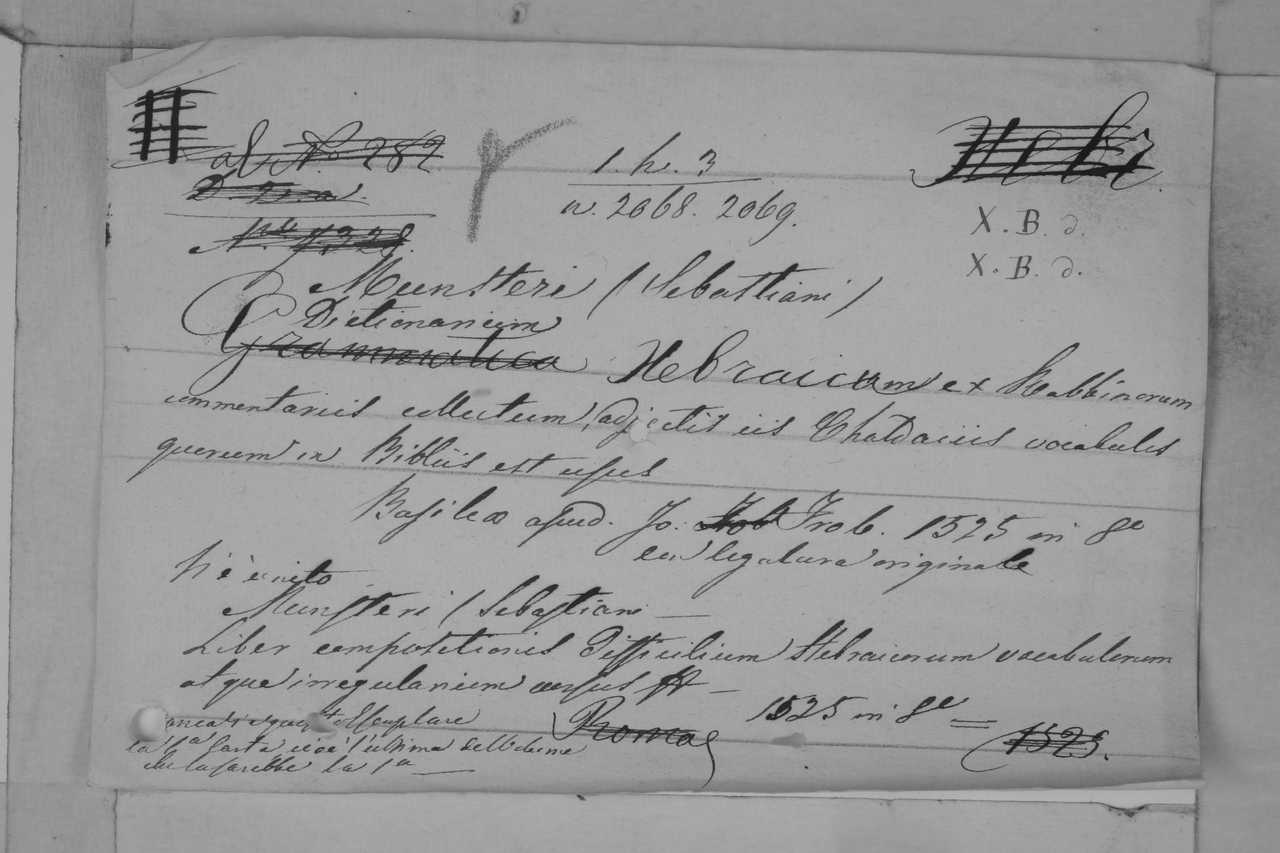 al No. 282
1. h. 3
Hebr.
n. 2068. 2069.
No. 7328.
X. B. d.
X. B. d.
Munsteri (Sebastiani)
Dictionarium
Grammatica Hebraicum ex Rabbinorum
commentariis collectum, adjectis iis Chaldaicis vocabulis
quorum in Bibliis est usus
Basileæ apud. Jo. Frob. 1525 in 8o
con legatura originale
Vi è unito
Munsteri (Sebastiani —
Liber compositionis difficilium Hebraicorum vocabulorum
atque irregularium —
1525 in 8o =
Roma
1525.
esemplare
la carta cioè l'ultima
che sarebbe la 1a —